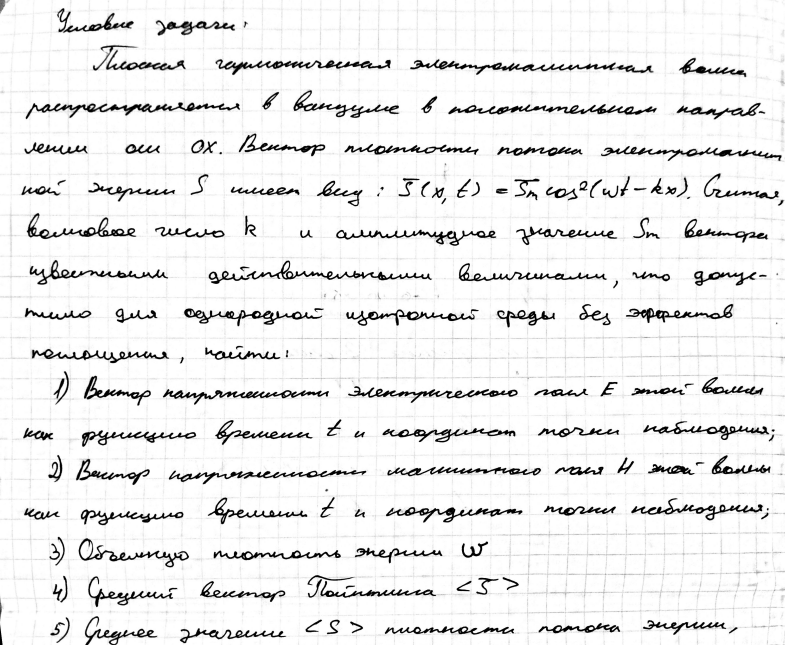 Условие задачи:
Плоская гармоническая электромагнитная волна
распространяется в вакууме в положительном направ-
лении оси OX. Вектор плотности потока электромагнит
ной энергии S имеет вид: S̄(x,t) = S̄m cos²(ωt-kx). Считая,
волновое число k и амплитудное значение Sm вектора
известными действительными величинами, что допус-
тимо для однородной изотропной среды без эффектов
поглощения, найти:
1) Вектор напряженности электрического поля E этой волны
как функцию времени t и координат точки наблюдения;
2) Вектор напряженности магнитного поля H этой волны
как функцию времени t и координат точки наблюдения;
3) Объемную плотность энергии ω
4) Средний вектор Пойнтинга <S̄>
5) Среднее значение <S> плотности потока энергии,